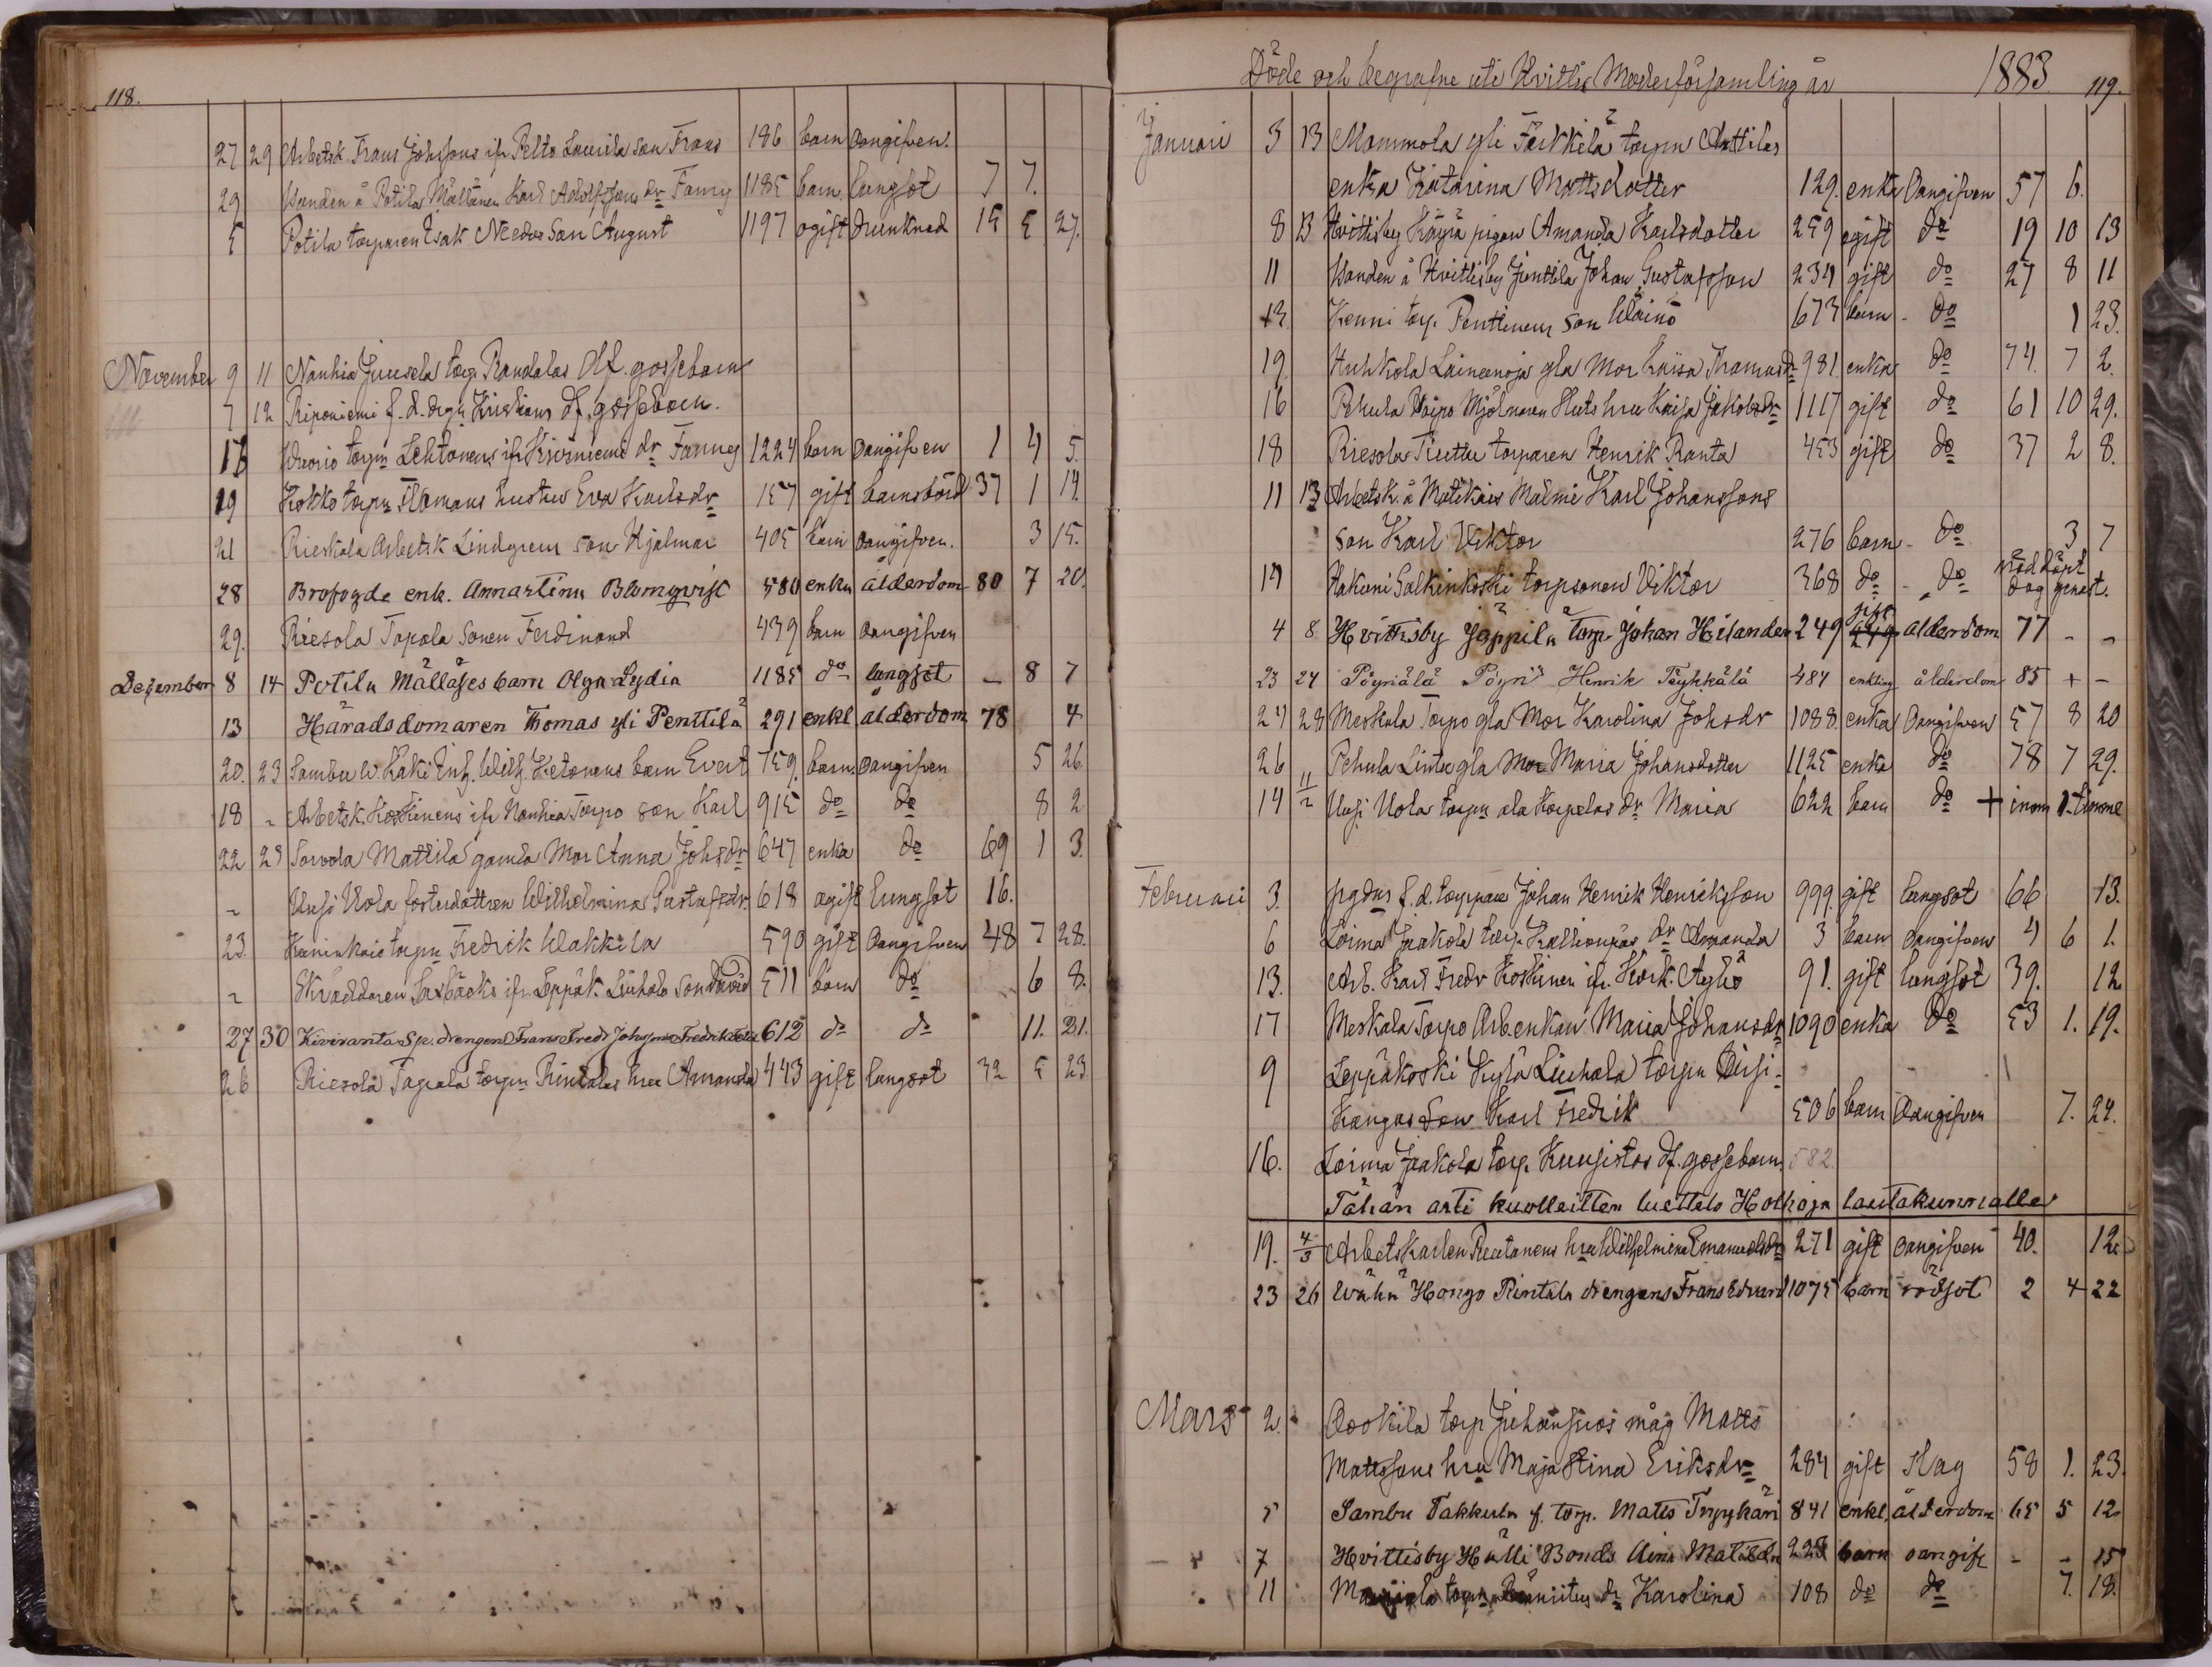 118.
27 29 Arbetsk. Frans Johssons ifr Pelto Laurila son Frans 186 barn oangifven.
29 Wanden å Potila Mällänen Karl Adolfssons dr Fanny 1185 barn lungsot 7 7.
5 Potila torparen Isak son August 1197 ogift drunknad 15 5 27.
November 9 11 Nanhia Juusela torp. Randalas df. gossebarn
7 12 Riponiemi f. d. drgn Kristians df. gossebarn.
16 Wuorio torpn Lehtonens ifr Kiviniemi dr Fanny 1224 barn oangifven 1 4 5.
19 Kokko torpn Flomans hustru Eva Karlsdr 157 gift barnsbörd 37 1 14.
21 Rieskala Arbetsk Lindgrens son Hjalmar 405 barn oangifven. 3 15.
28 Brofogde enk. Annastina Blomqvist 580 enka ålderdom 80 7 20.
29. Riesola Tapola sonen Ferdinand 439 barn oangifven
December 8 14 Potila Mälläses barn Olga Lydia 1185 do lungsot – 8 7
13 Häradsdomaren Thomas yli Penttilä 291 enkl ålderdom 78 4
20. 23 Sambu w. Kaki Inh. Wilh. Ketonens barn Evert 759. barn. oangifven 5 26
18 " Arbetsk. Koskinens ifr Nanhia Torpo son Karl 915 do do 8 2
22 23 Sorvola Mattila gamla Mor Anna Johsdr 647 enka do 69 1 3.
" Uusi Uola fosterdottren Wilhelmina Gustafsdr. 618 ogift lungsot 16.
23. Kaninkois torpn Fredrik Wakkila 590 gift oangifven 48 7 28.
" Skräddaren Saxbäcks ifr. Leppäk. Liuhala son David 511 barn do 6 8.
27 30 Kiviranta Sp. drengen Frans Fredr Johssons Fredrik 612 do do 11. 21.
26 Riesola Tapala torpn Rintalas hru Amanda 443 gift lungsot 32 5 23
Döde och begrafne uti Hvittis Moderförsamling år 1883 119.
Januari 3 13 Mommola yli Färkkilä torpn Anttilas
enka Katarina Mattsdotter 129. enka Oangifven 57 6.
8 13 Hvittisby Käyrä pigan Amanda Karlsdotter 259 ogift do 19 10 13
11 Wanden å Hvittisby Junttila Johan Gustafsson 234 gift do 27 8 11
13 Kenni torp. Penttinens son Wäinö 673 barn - do 1 23.
19 Huhkola Laineenoja gla Mor Kaisa Thomasdr 981. enka do 74. 7 2.
16 Pehula Raipo Mjölnaren Huts hru Kaisa Jakobsdr 1117 gift do 61 10 29.
18 Riesola Tuittu torparen Henrik Ranta 453 gift do 37 2 8.
11 13 Arbetsk. å Matkais Malmi Karl Johanssons
son Karl Viktor 276 barn - do 3 7
14 Hakuni Salkinkoski torpsonen Viktor 368 do - do nöddöpt dog genast.
4 8 Hvittisby Jäppilä torp Johan Helander 249 gift ålderdom 77 - -
23 24 Pöyriälä Pöyri Henrik Töykkälä 484 enkling ålderdom 85 + -
24 28 Meskala Torpo gla Mor Karolina Johsdr 1088. enka Oangifven 57 8 20
26 Pehula Lintu gla Mor Maria Johansdotter 1125 enka do 78 7 29.
14 11/2 Uusi Uola torpn ala Korpelas dr Maria 622 barn do + inom 1. timme
Februari 3. f. d. torppare Johan Henrik Henriksson 999. gift lungsot 66 13.
6 Loima Jaakola torp. Kallionpäs dr Amanda 3 barn oangifven 4 6 1.
13. Arb. Karl Fredr Koskinen ifr. Kock. Aghö 91. gift lungsot 39. 12
17 Meskala Torpo Arb.enkan Maria Johansdr 1090 enka do 53 1. 19.
9 Leppäkoski Kylä Liuhala torpn Uusi-
Kangas son Karl Fredrik 506 barn Oangifven 7. 24.
16. Loima Jaakola torp. Kuusistos df. gossebarn 582.
Tähän asti kuolleitten luettelo Holhoja lautakunnalle
19. 4/3 Arbetskarlen Ruutanens hru Wilhelmina Emanuelsdr 271 gift oangifven 40. 12.
23 26 Wähä Hongo Rintala drengens Frans Edvard 1075 barn rödsot 2 4 22
Mars 2. Ronkila torp Juhansuos måg Matts
Mattssons hru Maja Stina Eriksdr 284 gift Slag 58 1. 23.
5 Sambu Takkula f. torp. Matts Tryykäri 841 enkl. ålderdom 65 5 12
7 Hvittisby Hälli Bonds Aina Matilda 228 barn oangif - - 15
11 torpn dr Karolina 108 do do 7. 18.